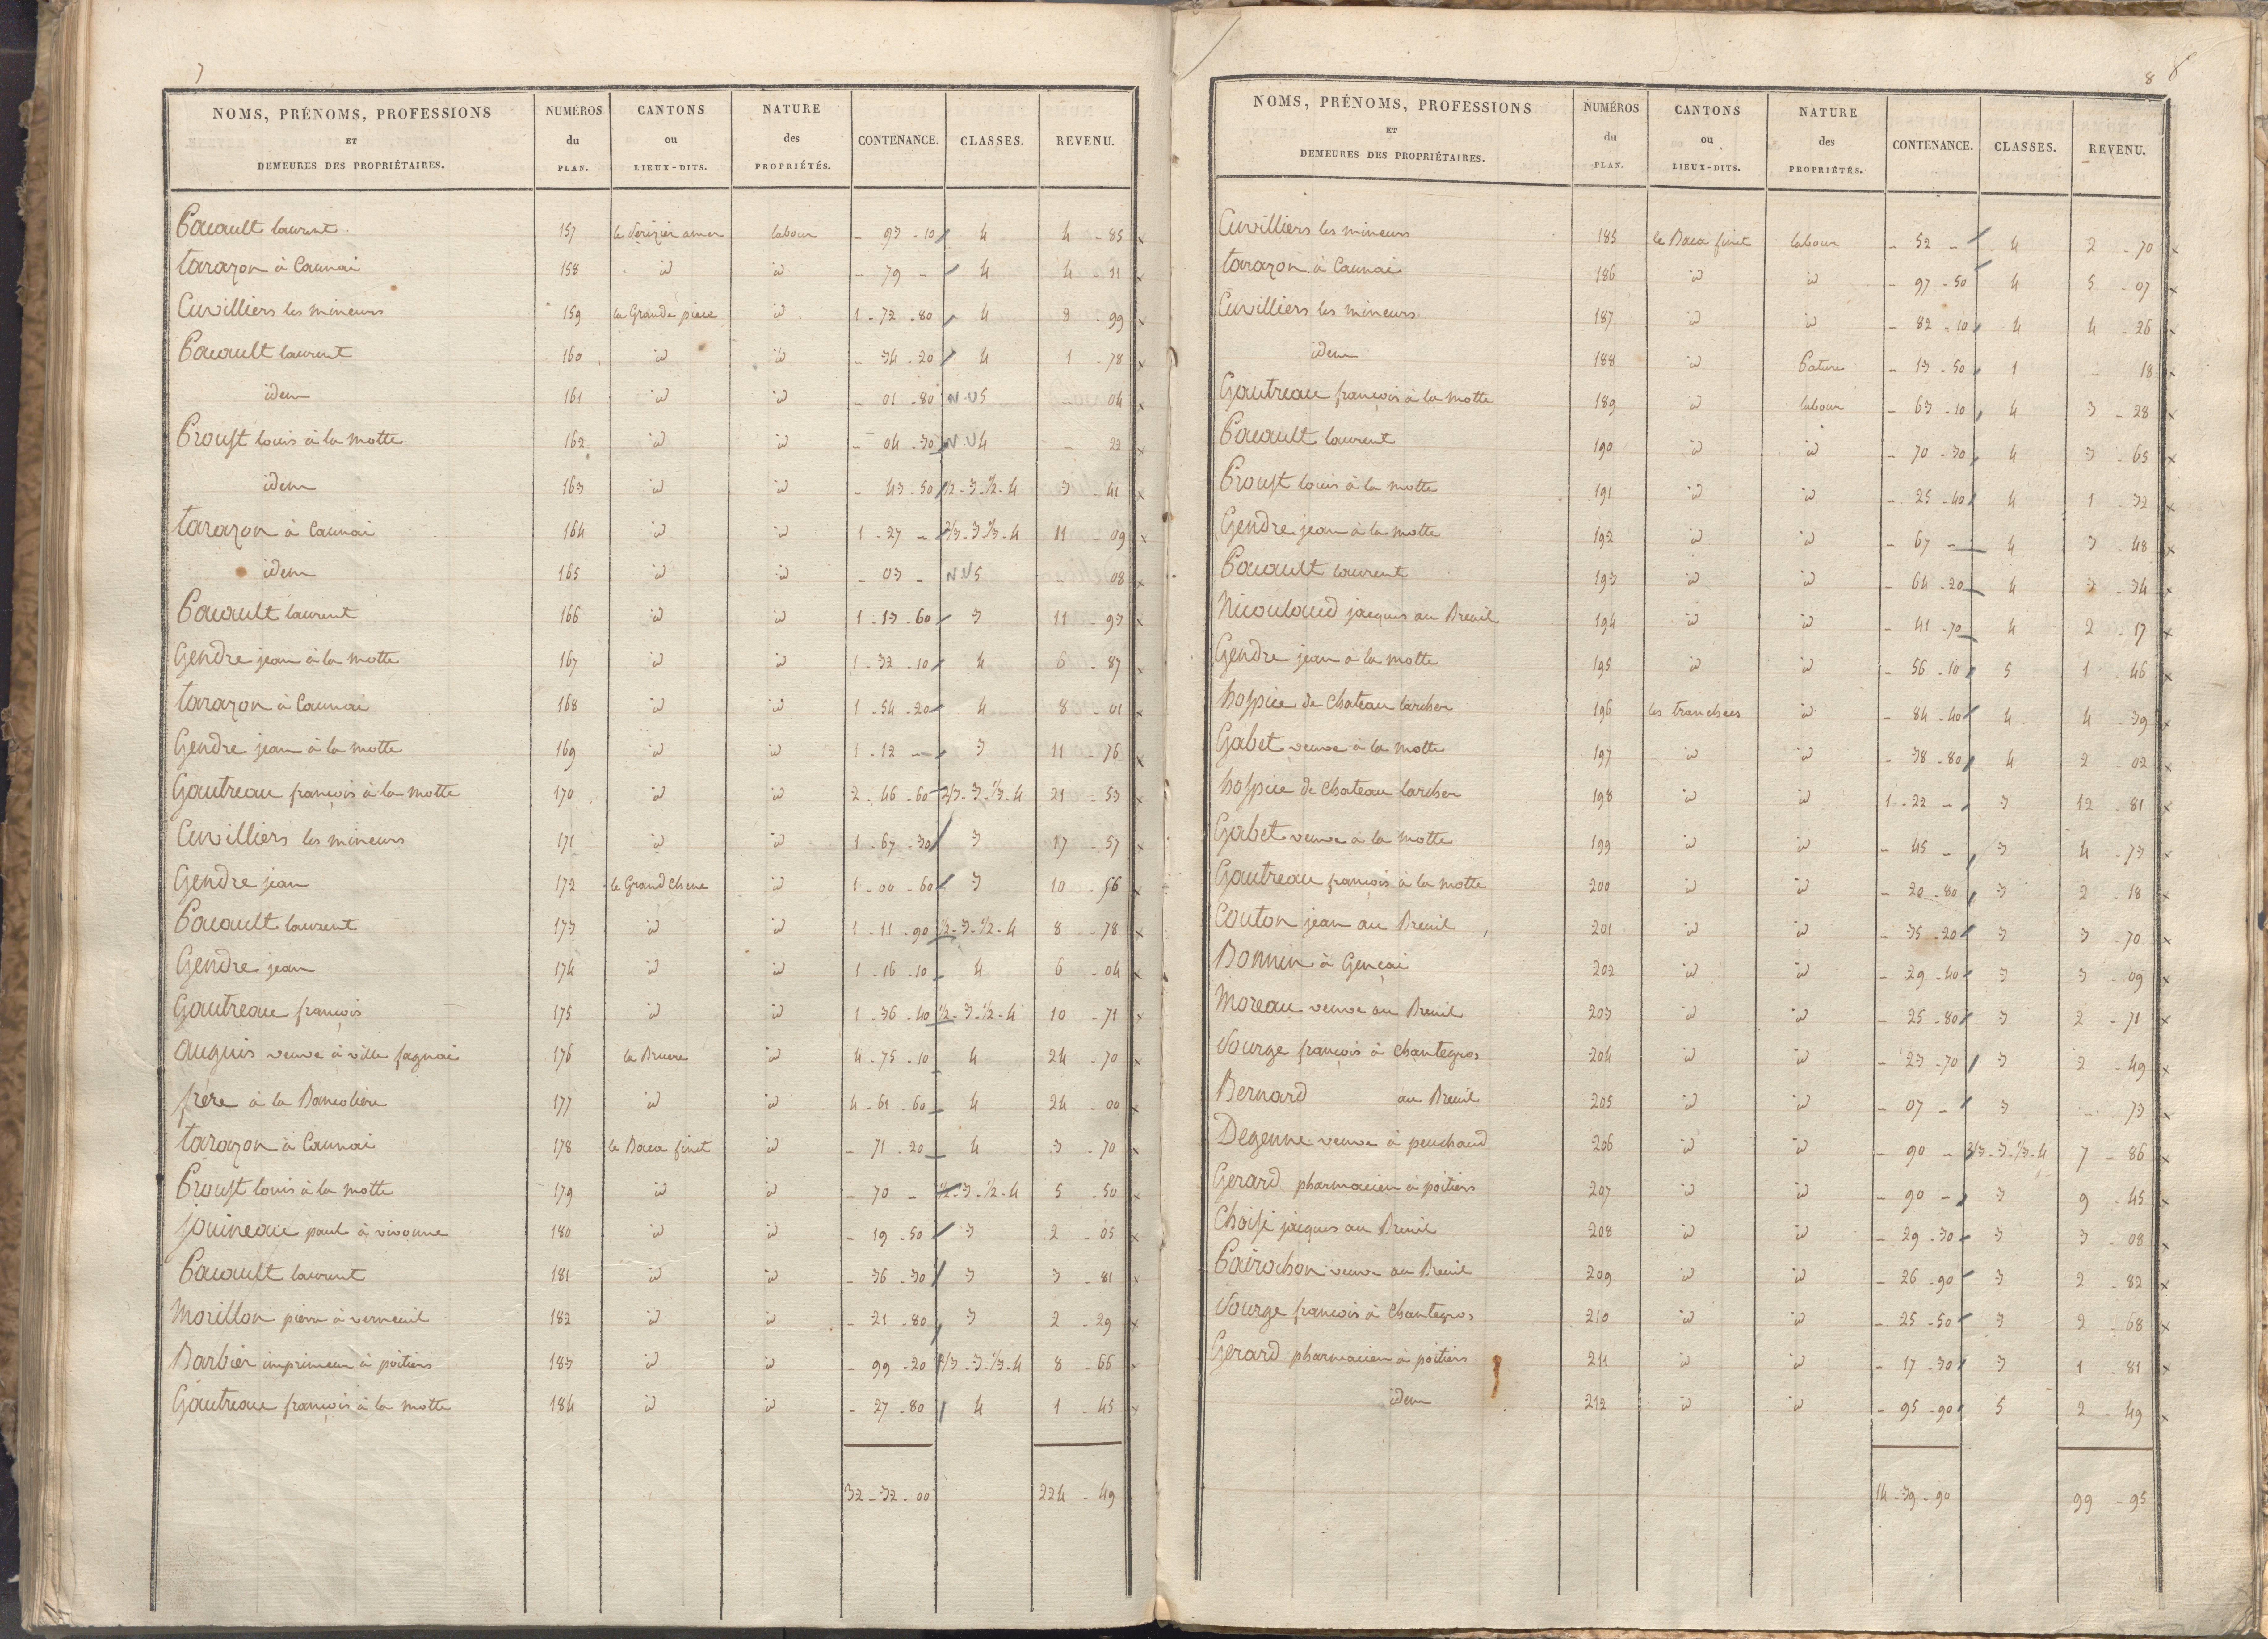 7
NOMS, PRÉNOMS, PROFESSIONS ET DEMEURES DES PROPRIÉTAIRES. NUMÉROS du PLAN. CANTONS ou LIEUX-DITS. NATURE des PROPRIÉTÉS. CONTENANCE. CLASSES. REVENU.
Pacault laurent 157 le Serizier amer labour - 93 - 10 4 4 - 85
tarazon à Caunai 158 id id - 79 - 4 4 - 11
Cuvilliers les mineurs 159 la Grande piece id 1 - 72 - 80 4 8 - 99
Pacault laurent 160 id id - 34 - 20 4 1 - 78
idem 161 id id - 01 - 80 N.V 5 - 04
Proust louis à la motte 162 id id - 04 - 30 N.V 4 - 22
idem 163 id id - 43 - 50 1/2 - 3 - 1/2 - 4 3 - 41
tarazon à Caunai 164 id id 1 - 27 - 2/3 - 3 1/3 - 4 11 - 09
idem 165 id id - 03 - N.V 5 08
Pacault laurent 166 id id 1 - 13 - 60 3 11 - 93
Gendre jean à la motte 167 id id 1 - 32 - 10 4 6 - 87
tarazon à Caunai 168 id id 1 - 54 - 20 4 8 - 01
Gendre jean à la motte 169 id id 1 - 12 - 3 11 - 76
Gautreau françois à la motte 170 id id 2 - 46 - 60 2/3 - 3 - 1/3 - 4 21 - 53
Cuvilliers les mineurs 171 id id 1 - 67 - 30 3 17 - 57
Gendre jean 172 le Grand Chene id 1 - 00 - 60 3 10 - 56
Pacault laurent 173 id id 1 - 11 - 90 1/2 - 3 - 1/2 - 4 8 - 78
Gendre jean 174 id id 1 - 16 - 10 4 6 - 04
Gautreau françois 175 id id 1 - 36 - 40 1/2 - 3 - 1/2 - 4 10 - 71
auguis veuve à ville fagnai 176 la Bruere id 4 - 75 - 10 4 24 - 70
frere à la 177 id id 4 - 61 - 60 4 24 - 00
tarazon à Caunai 178 le Baca finet id - 71 - 20 4 3 - 70
Proust louis à la motte 179 id id - 70 - 1/2 - 3 - 1/2 - 4 5 - 50
jouineau paul à vivonne 180 id id - 19 - 50 3 2 - 05
Pacault laurent 181 id id - 36 - 30 3 3 - 81
Morillon pierre à verneuil 182 id id - 21 - 80 3 2 - 29
Barbier imprimeur à poitiers 183 id id - 99 - 20 2/3 - 3 - 1/3 - 4 8 - 66
Gautreau françois à la motte 184 id id - 27 - 80 4 1 - 45
32 - 32 - 00 224 - 49
8 8
NOMS, PRÉNOMS, PROFESSIONS ET DEMEURES DES PROPRIÉTAIRES. NUMÉROS du PLAN. CANTONS ou LIEUX-DITS. NATURE des PROPRIÉTÉS. CONTENANCE. CLASSES. REVENU.
Cuvilliers les mineurs 185 le Baca finet labour - 52 - 4 2 - 70
tarazon à Caunai 186 id id - 97 - 50 4 5 - 07
Cuvilliers les mineurs 187 id id - 82 - 10 4 4 - 26
idem 188 id Pature - 13 - 50 1 - 18
Gautreau françois à la motte 189 id labour - 63 - 10 4 3 - 28
Pacault laurent 190 id id - 70 - 30 4 3 - 65
Proust louis à la motte 191 id id - 25 - 40 4 1 - 32
Gendre jean à la motte 192 id id - 67 - 4 3 - 48
Pacault laurent 193 id id - 64 - 20 4 3 - 34
Nicouloud jacques au Breuil 194 id id - 41 - 70 4 2 - 17
Gendre jean à la motte 195 id id - 56 - 10 5 1 - 46
hospice de Chateau larcher 196 les tranchées id - 84 - 40 4 4 - 39
Gabet veuve à la motte 197 id id - 38 - 80 4 2 - 02
hospice de Chateau larcher 198 id id 1 - 22 - 3 12 - 81
Gabet veuve à la motte 199 id id - 45 - 3 4 - 73
Gautreau françois à la motte 200 id id - 20 - 80 3 2 - 18
Couton jean au Breuil 201 id id - 35 - 20 3 3 - 70
Bonnin à Gençai 202 id id - 29 - 40 3 3 - 09
Moreau veuve au Breuil 203 id id - 25 - 80 3 2 - 71
Sourge françois à Chantegros 204 id id - 23 - 70 3 2 - 49
Bernard au Breuil 205 id id - 07 - 3 - 73
Degenne veuve à peuchaud 206 id id - 90 - 2/3 - 3 - 1/3 - 4 7 - 86
Gerard pharmacien à poitiers 207 id id - 90 - 3 9 - 45
Choisi jacques au Breuil 208 id id - 29 - 30 3 3 - 08
Pairochon veuve au Breuil 209 id id - 26 - 90 3 2 - 82
Sourge françois à Chantegros 210 id id - 25 - 50 3 2 - 68
Gerard pharmacien à poitiers 211 id id - 17 - 30 3 1 - 81
idem 212 id id - 95 - 90 5 2 - 49
14 - 39 - 90 99 - 95